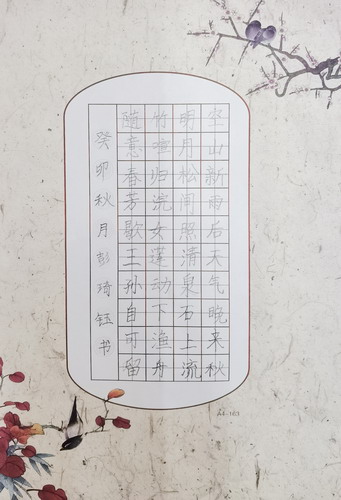 空山新雨后天气晚来秋
明月松间照清泉石上流
竹喧归浣女莲动下渔舟
随意春芳歇王孙自可留
癸卯秋月彭琦钰书